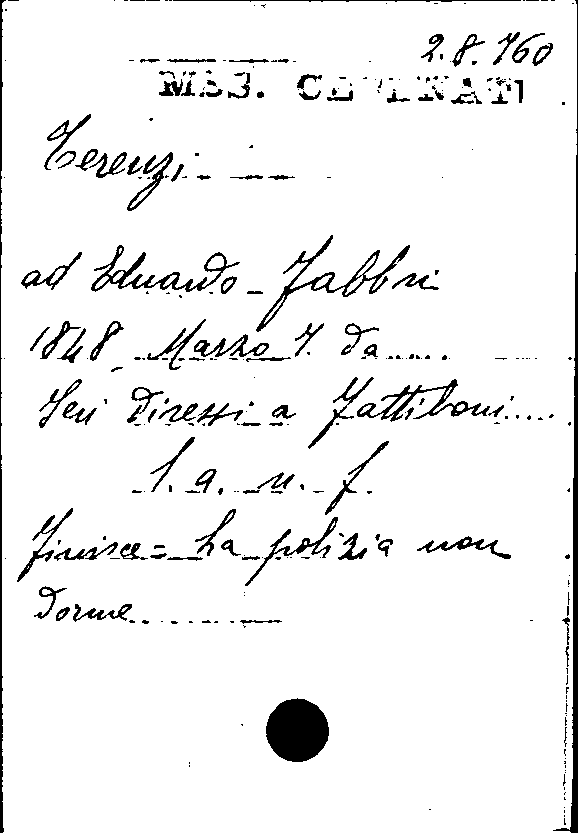 2.8.760
MSS. CEVENATI
Terenzi
ad Eduardo Fabbri
1848 Marzo 7. da .....
Ieri diressi a Fattiboni ....
l. a. n. f.
Finisce = La polizia non
dorme ........